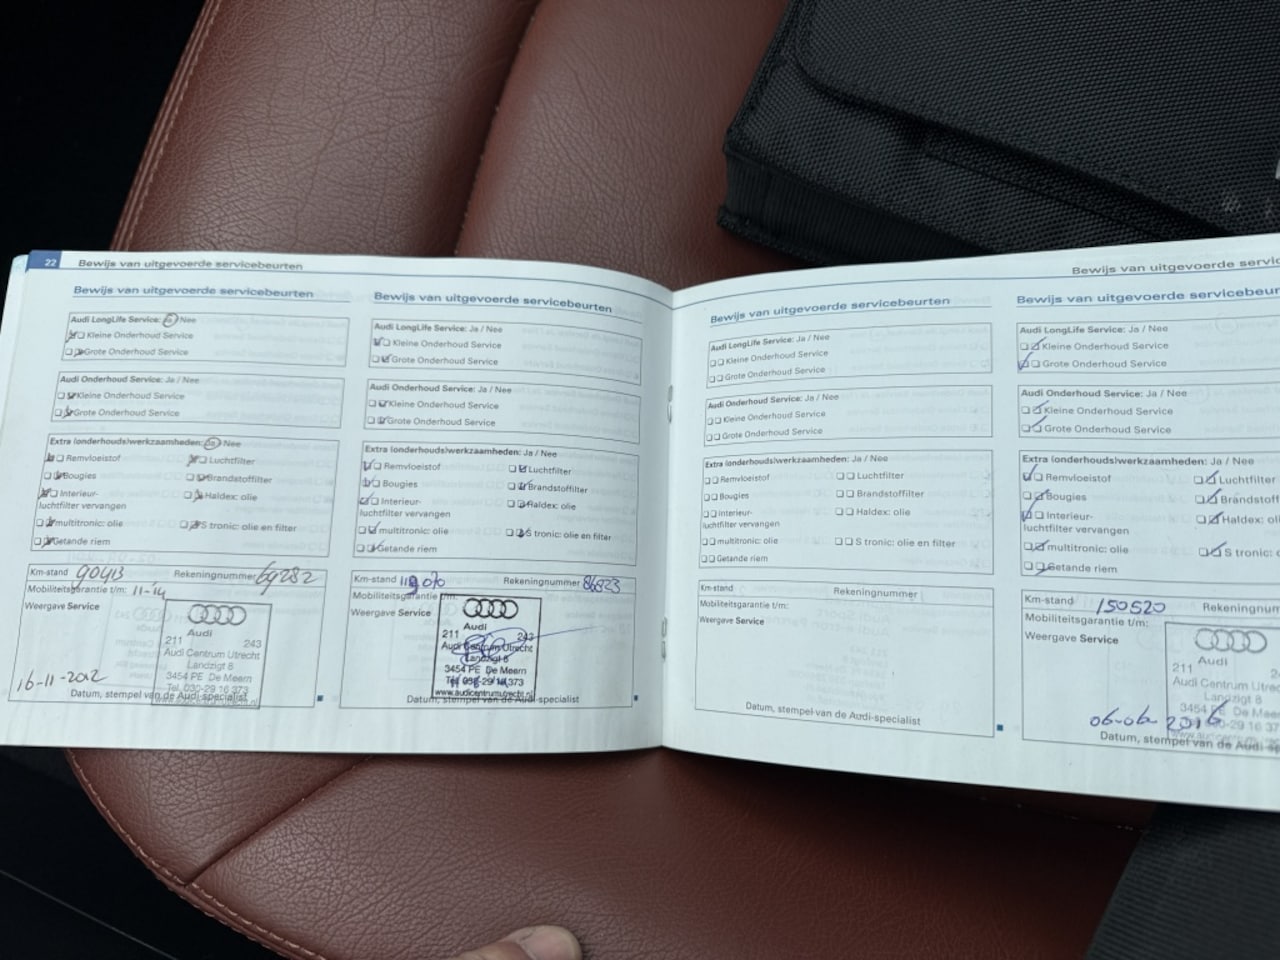 22 Bewijs van uitgevoerde servicebeurten
Bewijs van uitgevoerde servicebeurten
Audi LongLife Service: Ja Nee
Kleine Onderhoud Service
Grote Onderhoud Service
Audi Onderhoud Service: Ja / Nee
Kleine Onderhoud Service
Grote Onderhoud Service
Extra (onderhouds)werkzaamheden: Ja Nee
Remvloeistof Luchtfilter
Bougies Brandstoffilter
Interieur- Haldex: olie
luchtfilter vervangen
multitronic: olie S tronic: olie en filter
Getande riem
Km-stand 90413 Rekeningnummer 69282
Mobiliteitsgarantie t/m: 11-14
Weergave Service
Audi
211 243
Audi Centrum Utrecht
Landzigt 8
3454 PE De Meern
Tel. 030-29 16 373
16-11-2012
Datum, stempel van de Audi-specialist
Bewijs van uitgevoerde servicebeurten
Audi LongLife Service: Ja / Nee
Kleine Onderhoud Service
Grote Onderhoud Service
Audi Onderhoud Service: Ja / Nee
Kleine Onderhoud Service
Grote Onderhoud Service
Extra (onderhouds)werkzaamheden: Ja / Nee
Remvloeistof Luchtfilter
Bougies Brandstoffilter
Interieur- Haldex: olie
luchtfilter vervangen
multitronic: olie S tronic: olie en filter
Getande riem
Km-stand Rekeningnummer 86823
Mobiliteitsgarantie t/m:
Weergave Service
Audi
211 243
Audi Centrum Utrecht
Landzigt 8
3454 PE De Meern
Tel. 030-29 16 373
www.audicentrumutrecht.nl
Datum, stempel van de Audi-specialist
Bewijs van uitgevoerde servicebeurten
Audi LongLife Service: Ja / Nee
Kleine Onderhoud Service
Grote Onderhoud Service
Audi Onderhoud Service: Ja / Nee
Kleine Onderhoud Service
Grote Onderhoud Service
Extra (onderhouds)werkzaamheden: Ja / Nee
Remvloeistof Luchtfilter
Bougies Brandstoffilter
Interieur- Haldex: olie
luchtfilter vervangen
multitronic: olie S tronic: olie en filter
Getande riem
Km-stand Rekeningnummer
Mobiliteitsgarantie t/m:
Weergave Service
Datum, stempel van de Audi-specialist
Bewijs van uitgevoerde servic
Bewijs van uitgevoerde servicebeur
Audi LongLife Service: Ja / Nee
Kleine Onderhoud Service
Grote Onderhoud Service
Audi Onderhoud Service: Ja / Nee
Kleine Onderhoud Service
Grote Onderhoud Service
Extra (onderhouds)werkzaamheden: Ja / Nee
Remvloeistof Luchtfilter
Bougies Brandstof
Interieur- Haldex: o
luchtfilter vervangen
multitronic: olie S tronic: o
Getande riem
Km-stand 150520 Rekeningnum
Mobiliteitsgarantie t/m:
Weergave Service
Audi
211
Audi Centrum Utrec
Landzigt 8
3454 PE De Meer
06-06-2016
Datum, stempel van de Audi-sp